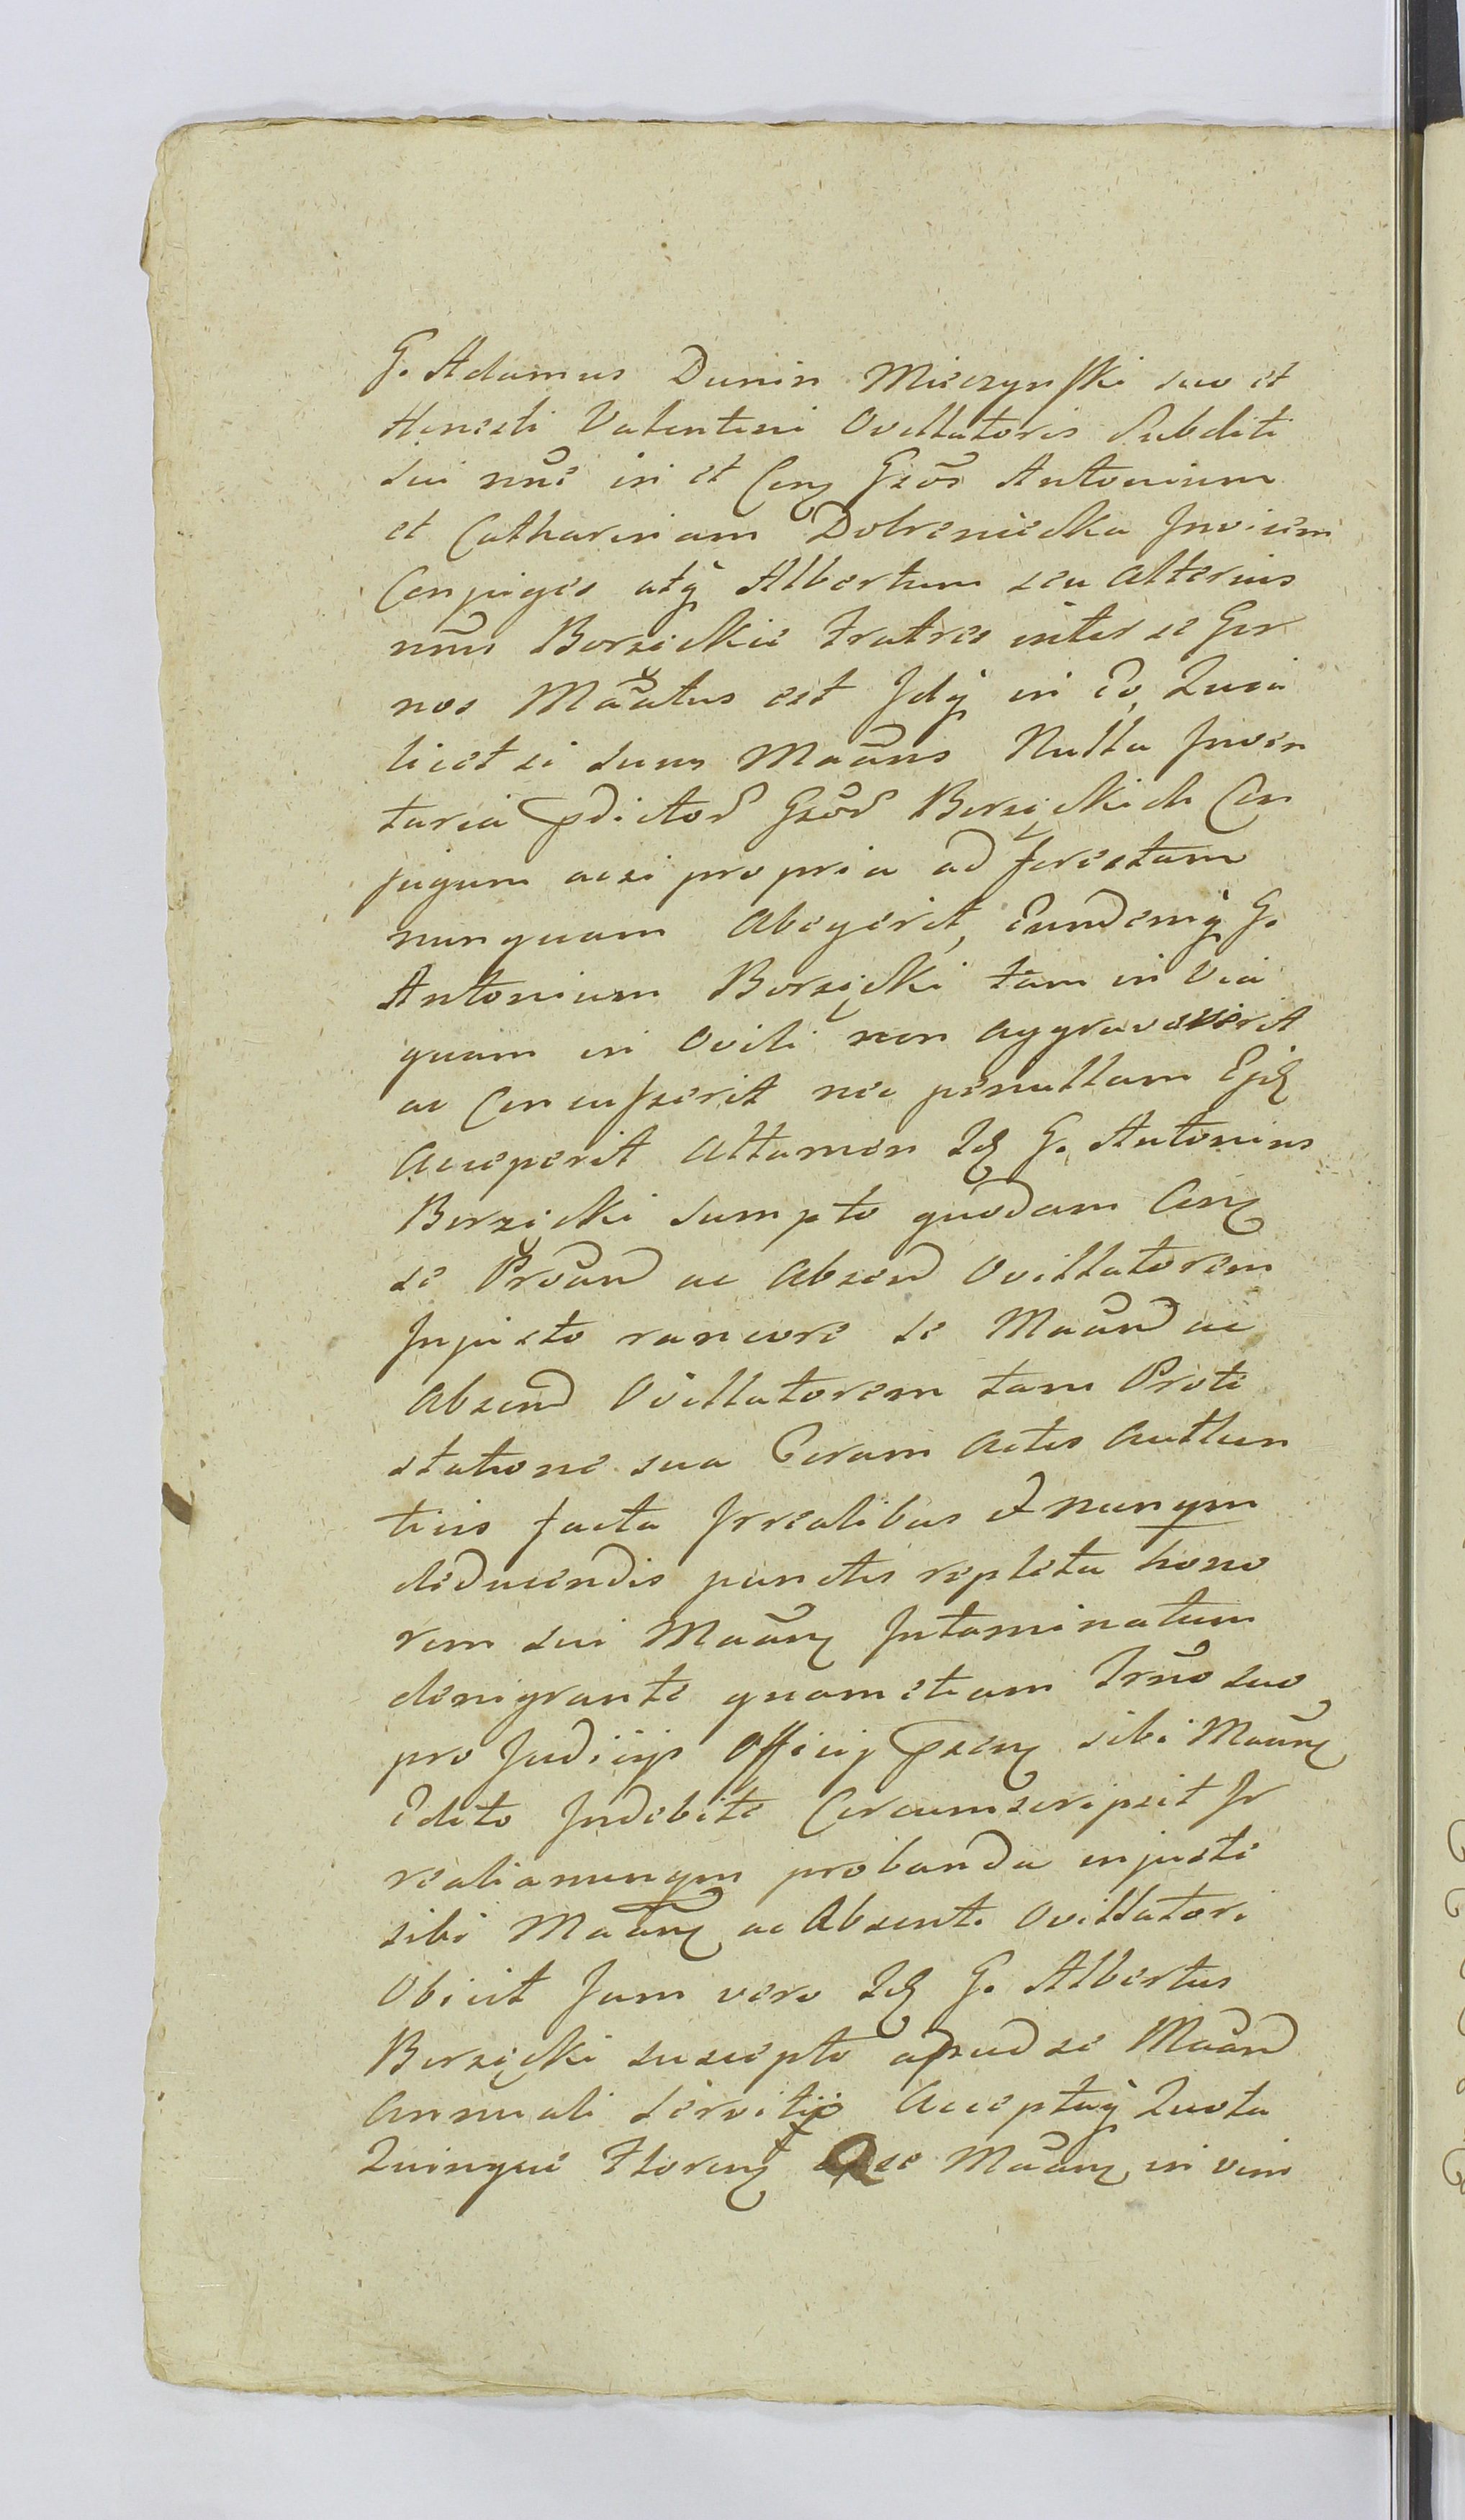 G. Adamus Dunin Mieczynski suo et
Honesti Valentini Ovillatoris Subditi
sui nñe in et Con Gsos Antonium
et Catharinam Dobreniecka Invicem
Conjuges atq Albertum seu alterius
nñis Borzickie Fratres inter se Ger
nos Mããtus est Idq in Eo, Quia
licet is suus Maãns Nulla Inven
taria pdictor Gsor Borzickich Con
jugum acsi propria ad forestam
nunquam Abegerit, Eundemq G.
Antonium Borzicki tam in Via
quam in Ovili non aggravaverit
ac Concusserit nec penullam Ejd
Acceperit Attamen Id G. Antonius
Borzicki sumpto quodam Con
se Proãnd ac Absend Ovillatorem
Injusto rancore se Maãnd ac
Absend Ovillatorem tam Prote
statione sua Coram Actis Authen
ticis facta Irrealibus et nunqm
deducendis punctis repleta hono
rem sui Maãn Intaminatum
denigrante quam etiam Trño suo
pro Judicijs Officij psen sibi Maãn
Edito Indebite Circumscripsit Ir
realia nunqm probanda injuste
sibi Maãn ac Absenti Ovillatori
Obicit Jam vero Id G. Albertus
Borzicki suscepto apud se Maãnd
Annuali servitio Acceptaq Quota
Quinque Floren a se Maãn in vim